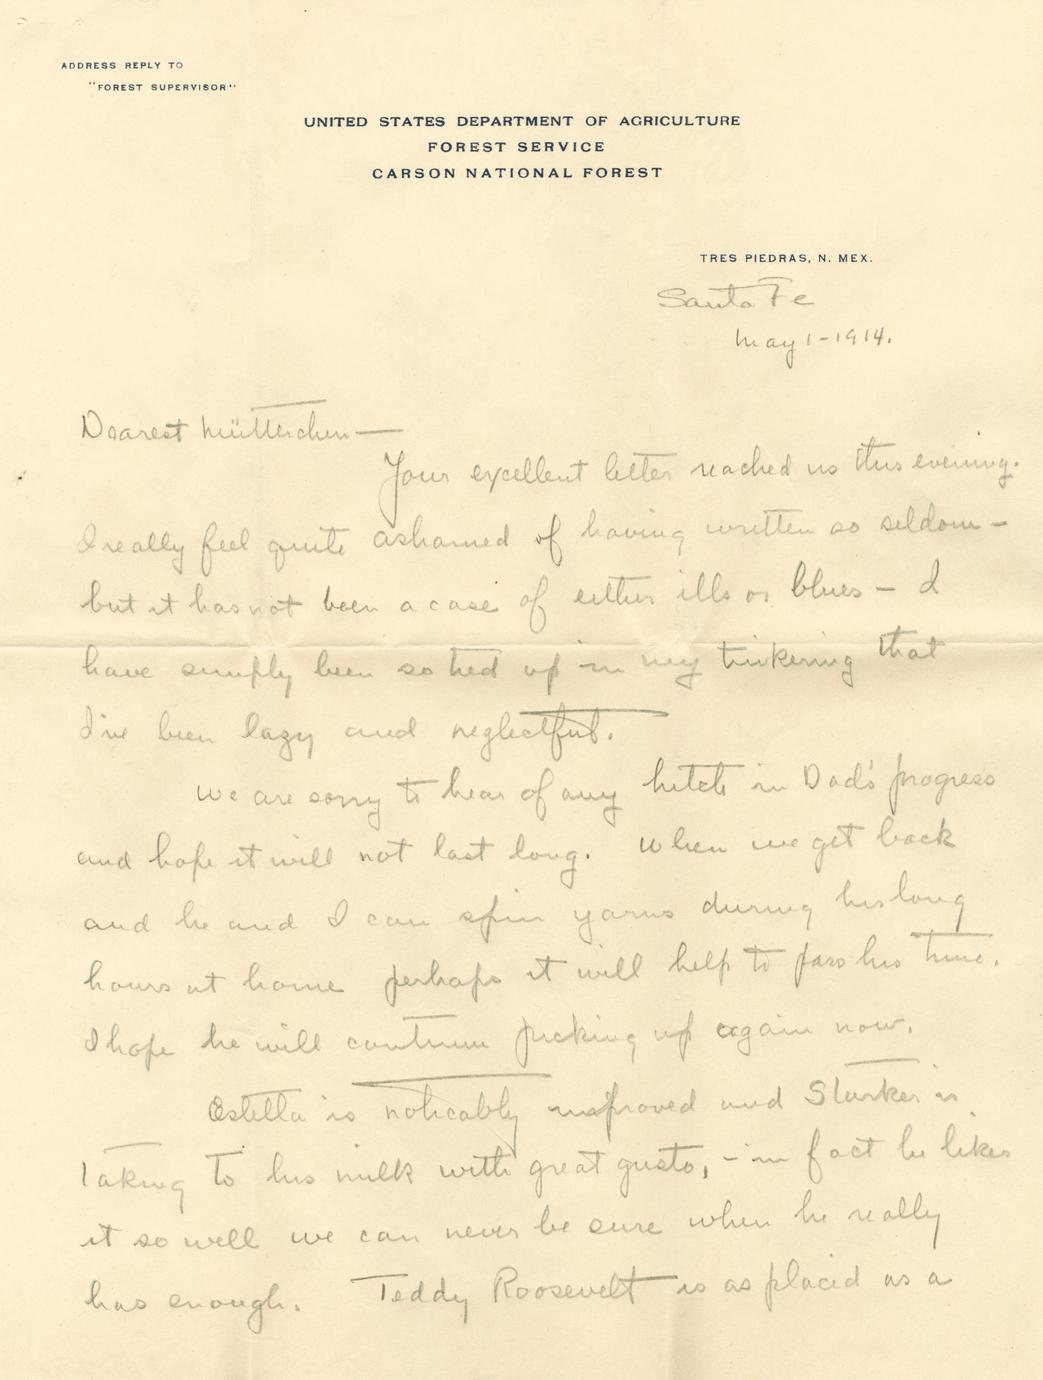 ADDRESS REPLY TO
"FOREST SUPERVISOR"
UNITED STATES DEPARTMENT OF AGRICULTURE
FOREST SERVICE
CARSON NATIONAL FOREST
TRES PIEDRAS, N. MEX.
Santa Fe
May 1-1914.
Dearest Mütterchen—
Your excellent letter reached us this evening.
I really feel quite ashamed of having written so seldom —
but it has not been a case of either ills or blues — I
have simply been so tied up in my tinkering that
I've been lazy and neglectful.
We are sorry to hear of any hitch in Dad's progress
and hope it will not last long. When we get back
and he and I can spin yarns during his long
hours at home perhaps it will help to pass his time.
I hope he will continue picking up again now.
Estella is noticably improved and Starker is
taking to his milk with great gusto, — in fact he likes
it so well we can never be sure when he really
has enough. Teddy Roosevelt is as placid as a